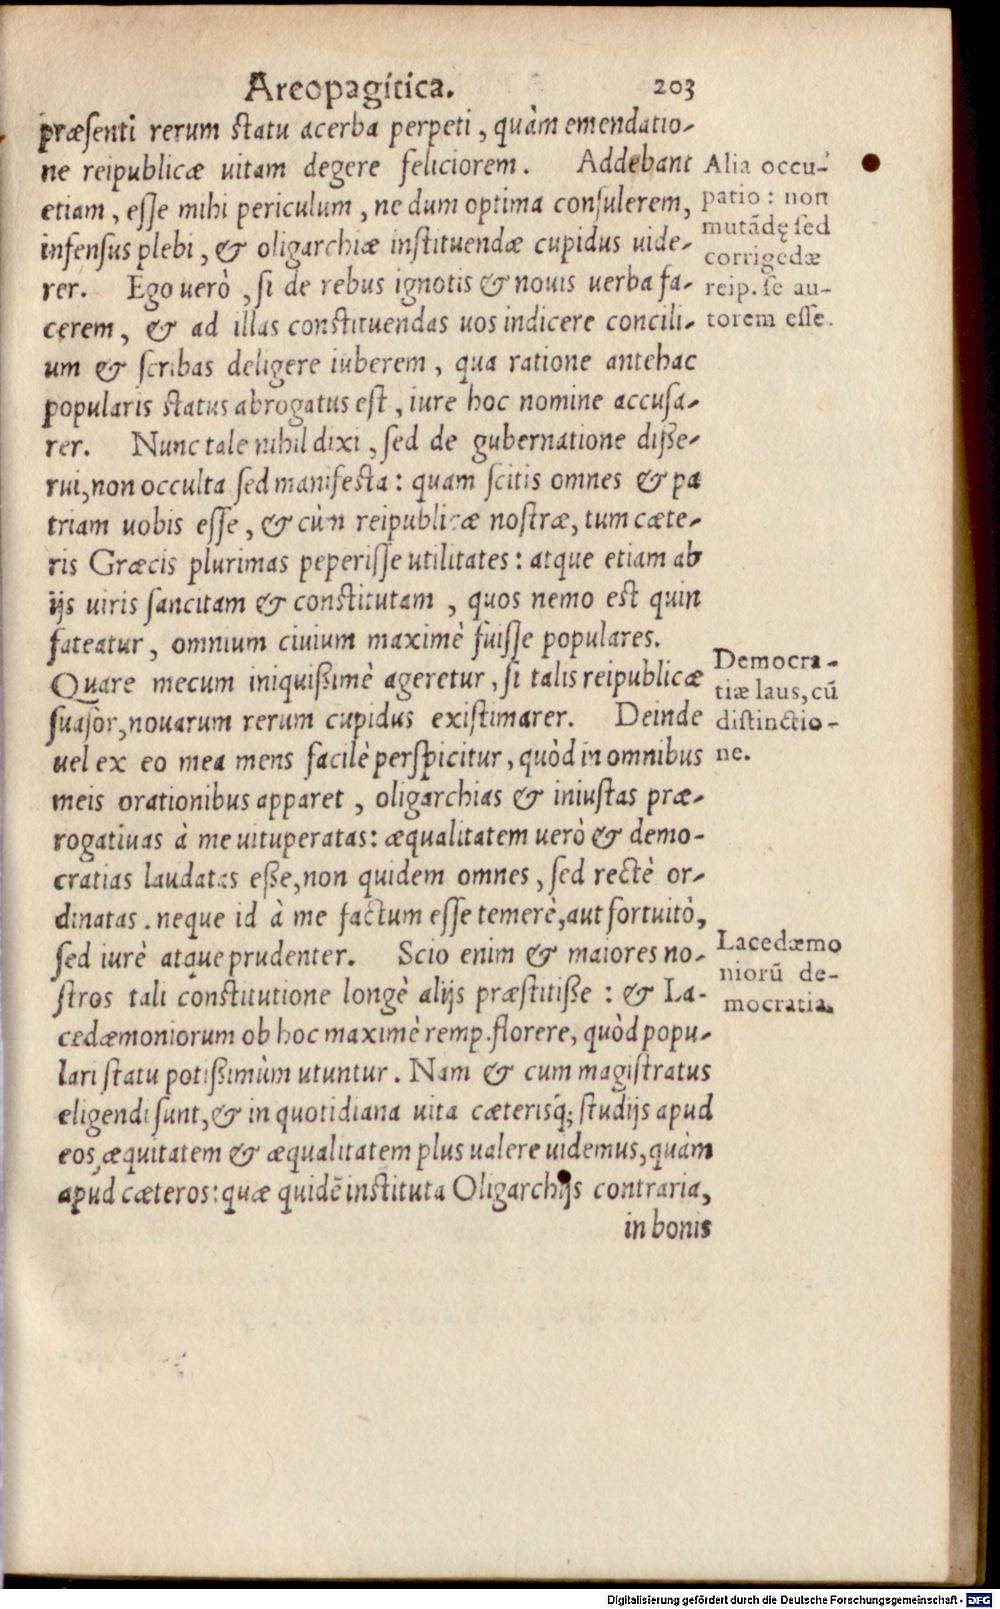 Areopagitica. 203
præsenti rerum statu acerba perpeti, quàm emendatio-
ne reipublicæ uitam degere feliciorem. Addebant
etiam, esse mihi periculum, ne dum optima consulerem,
infensus plebi, & oligarchiæ instituendæ cupidus uide-
rer. Ego uerò, si de rebus ignotis & nouis uerba fa-
cerem, & ad illas constituendas uos indicere concili-
um & scribas deligere iuberem, qua ratione antehac
popularis status abrogatus est, iure hoc nomine accusa-
rer. Nunc tale nihil dixi, sed de gubernatione disse-
rui, non occulta sed manifesta: quam scitis omnes & pa
triam uobis esse, & cùm reipublicæ nostræ, tum cæte-
ris Græcis plurimas peperisse utilitates: atque etiam ab
ijs uiris sancitam & constitutam, quos nemo est quin
fateatur, omnium ciuium maximè fuisse populares.
Quare mecum iniquißimè ageretur, si talis reipublicæ
suasor, nouarum rerum cupidus existimarer. Deinde
uel ex eo mea mens facilè perspicitur, quòd in omnibus
meis orationibus apparet, oligarchias & iniustas præ-
rogatiuas à me uituperatas: æqualitatem uerò & demo-
cratias laudatas eße, non quidem omnes, sed rectè or-
dinatas. neque id à me factum esse temerè, aut fortuitò,
sed iurè atque prudenter. Scio enim & maiores no-
stros tali constitutione longè alijs præstitiße: & La-
cedæmoniorum ob hoc maximè remp. florere, quòd popu-
lari statu potißimùm utuntur. Nam & cum magistratus
eligendi sunt, & in quotidiana uita cæterisq́; studijs apud
eos æquitatem & æqualitatem plus ualere uidemus, quàm
apud cæteros: quæ quidē instituta Oligarchijs contraria,
in bonis
Alia occu-
patio: non
mutādę sed
corrigedæ
reip. se au-
torem esse.
Democra-
tiæ laus, cū
distinctio-
ne.
Lacedæmo
niorū de-
mocratia.
Digitalisierung gefördert durch die Deutsche Forschungsgemeinschaft - DFG